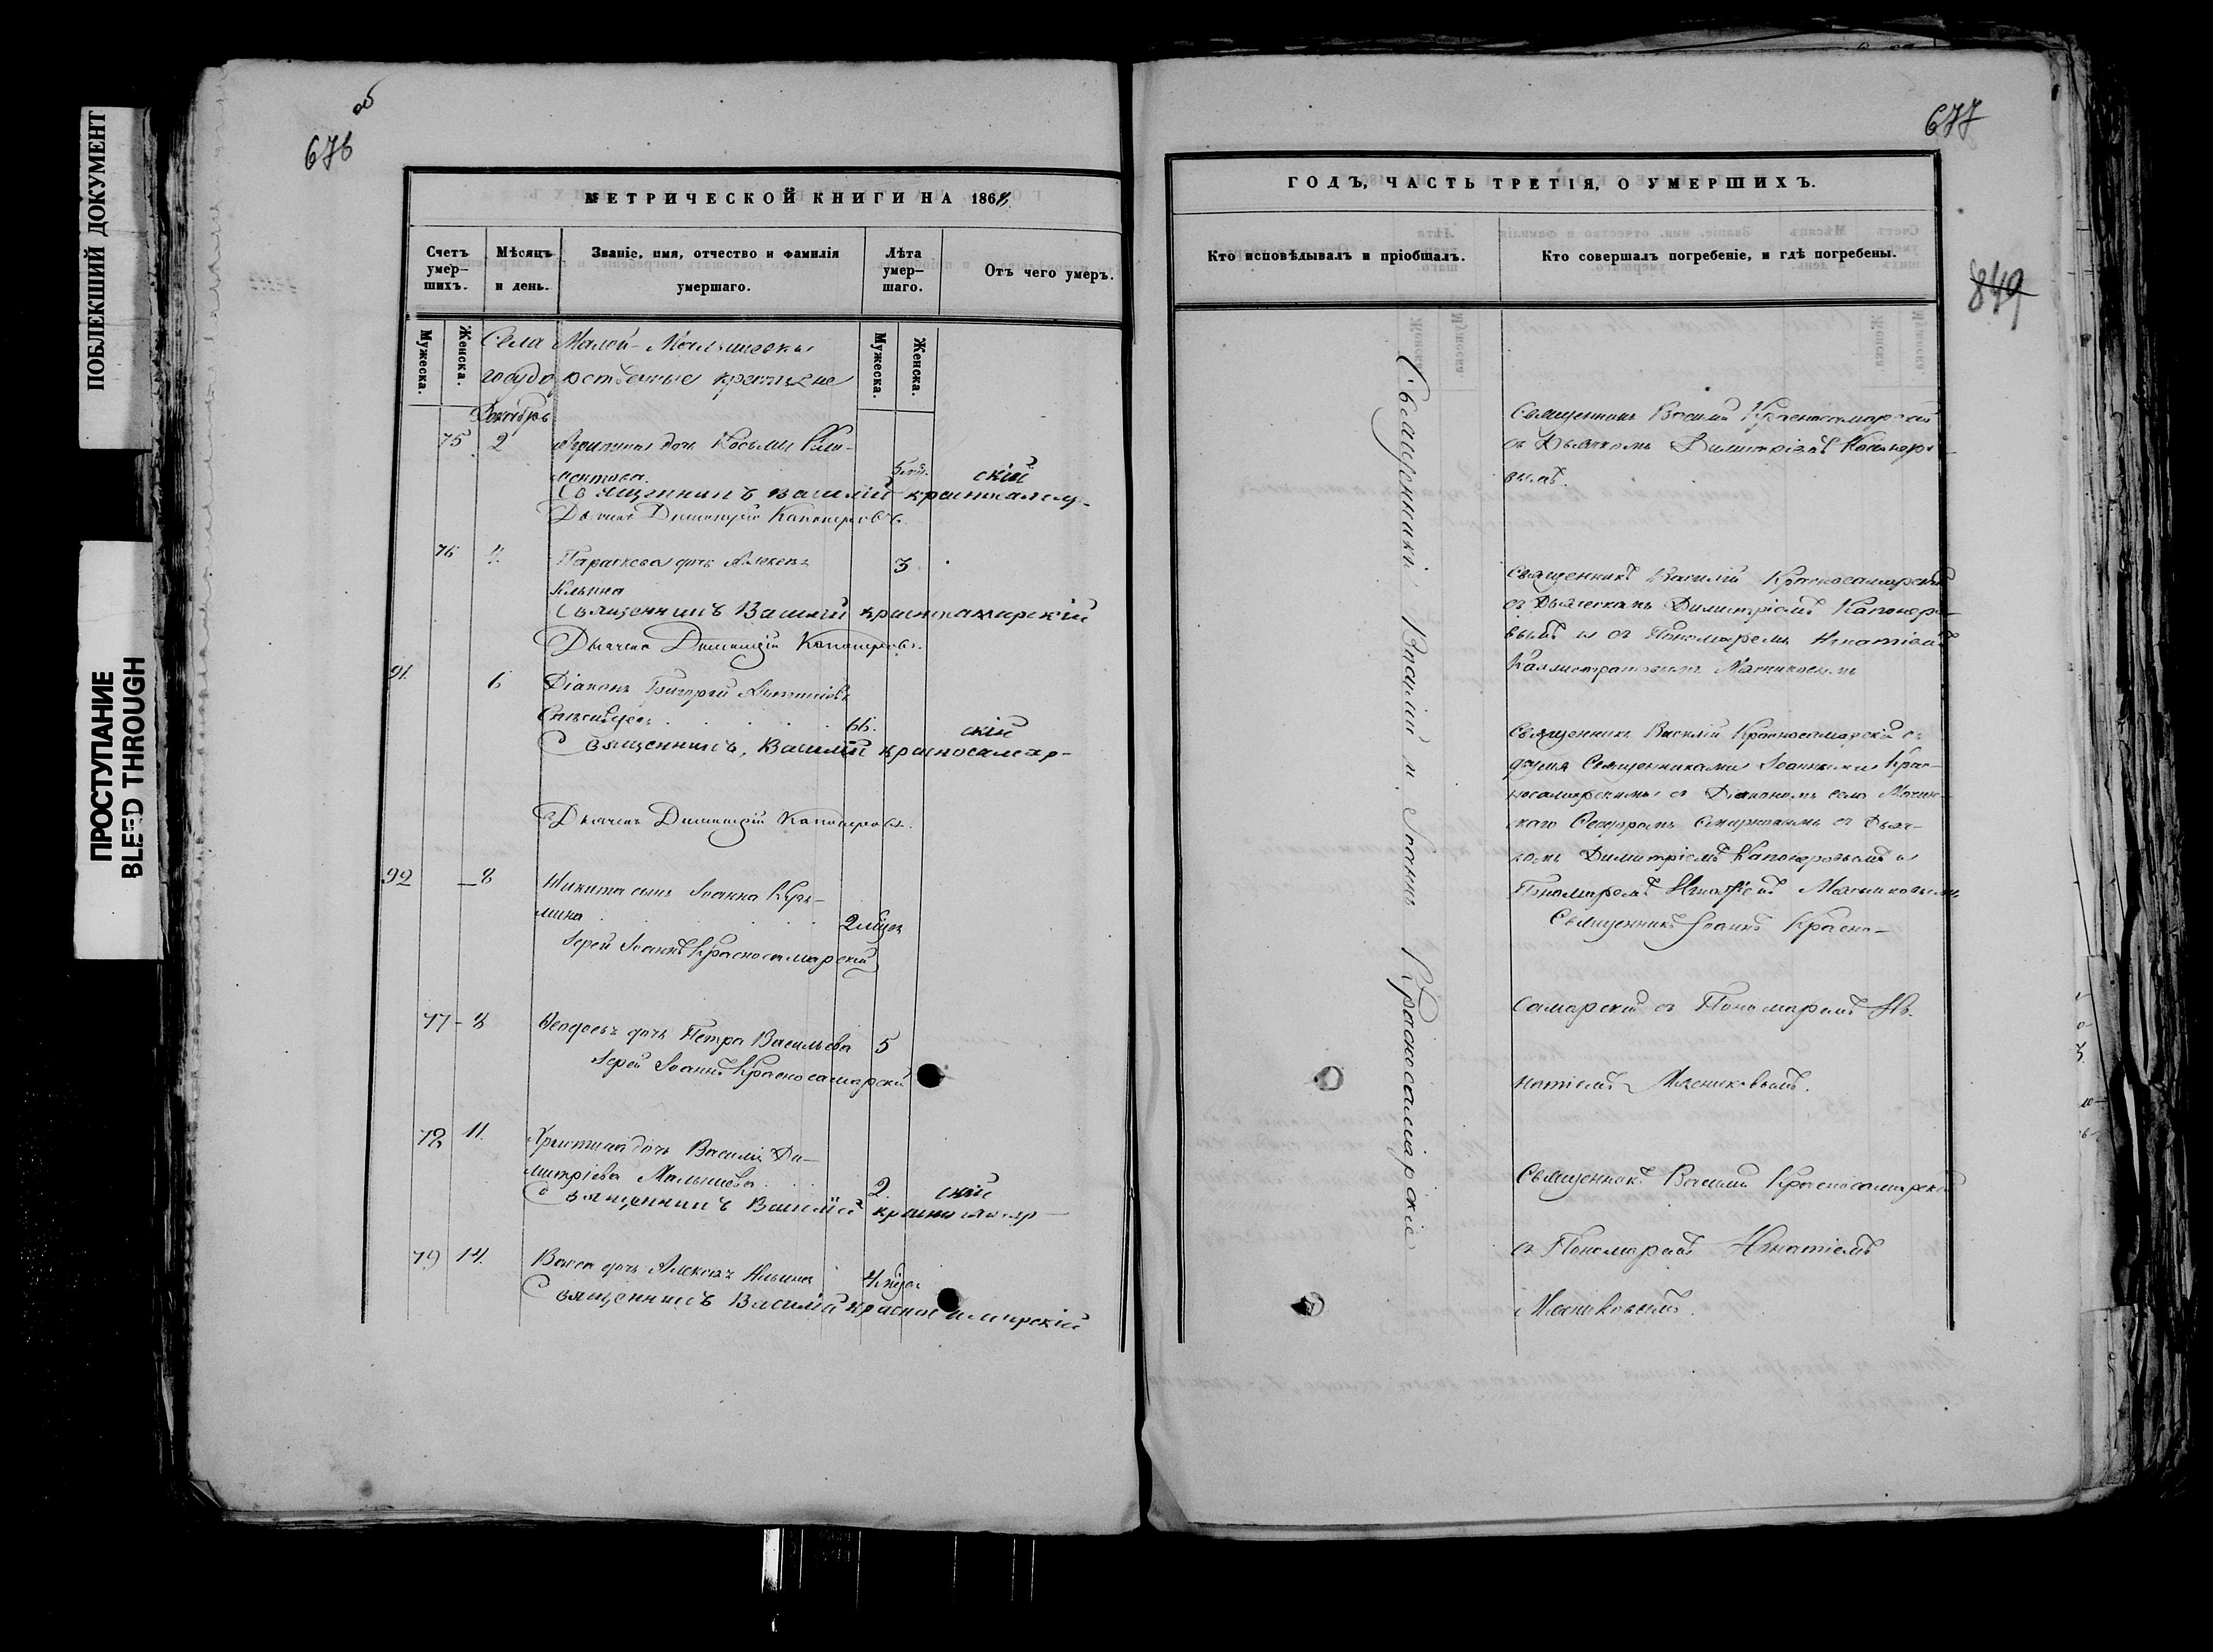 ПОБЛЕКШИЙ ДОКУМЕНТ
ПРОСТУПАНИЕ
BLEED THROUGH
676
об
МЕТРИЧЕСКОЙ КНИГИ НА 1868
Счетъ умер-шихъ.
Мѣсяцъ и день.
Званіе, имя, отчество и фамилія умершаго.
Лѣта умер-шаго.
Отъ чего умеръ.
Мужеска.
Женска.
Мужеска.
Женска.
Села Малой-Малышевки
государственные крестьяне
Декабрь
75 2 дочь Косьмы Кли-
ментова 5
Священникъ Василий Красносамар-
скій
Дьячекъ Димитрій Капонеровъ.
76 4. Параскева дочь Алексѣя
Ильина 3
Священникъ Василій Красносамарскій
Дьячекъ Димитрій Капонеровъ.
91. 6 Діаконъ Григорій
66.
Священникъ, Василій Красносамар-
скій
Дьячекъ Димитрій Капонеровъ.
92 8 Никита сынъ Іоанна Кузь-
мина 2
Іерей Іоаннъ Красносамарскій
77 - 8 дочь Петра Васильева 5
Іерей Іоаннъ Красносамарскій
78 11. дочь Василія Ди-
митріева Малышева 2.
Священникъ Василій Красносамар-
скій
79 14. дочь Алексѣя Ильина 4
Священникъ Василій Красносамарскій
677
849
ГОДЪ, ЧАСТЬ ТРЕТІЯ, О УМЕРШИХЪ.
Кто исповѣдывалъ и пріобщалъ.
Кто совершалъ погребеніе, и гдѣ погребены.
Священники Василій и Іоаннъ Красносамарскіе
Священникъ Василій Красносамарскій
съ Дьячкомъ Димитріемъ Капонеро-
вымъ.
Священникъ Василій Красносамарскій
съ Дьячкомъ Димитріемъ Капонеро-
вымъ и съ Пономаремъ Игнатіемъ
Каллистратовымъ Мясниковымъ
Священникъ Василій Красносамарскій съ
двумя Священниками Іоаннами Крас-
носамарскими съ Діакономъ села
Ѳеодоромъ Смирновымъ съ Дьяч-
комъ Димитріемъ Капонеровымъ и
Пономаремъ Игнатіемъ Мясниковымъ.
Священникъ Іоаннъ Красно-
самарскій съ Пономаремъ Иг-
натіемъ Мясниковымъ.
Священникъ Василій Красносамарскій
съ Пономаремъ Игнатіемъ
Мясниковымъ.